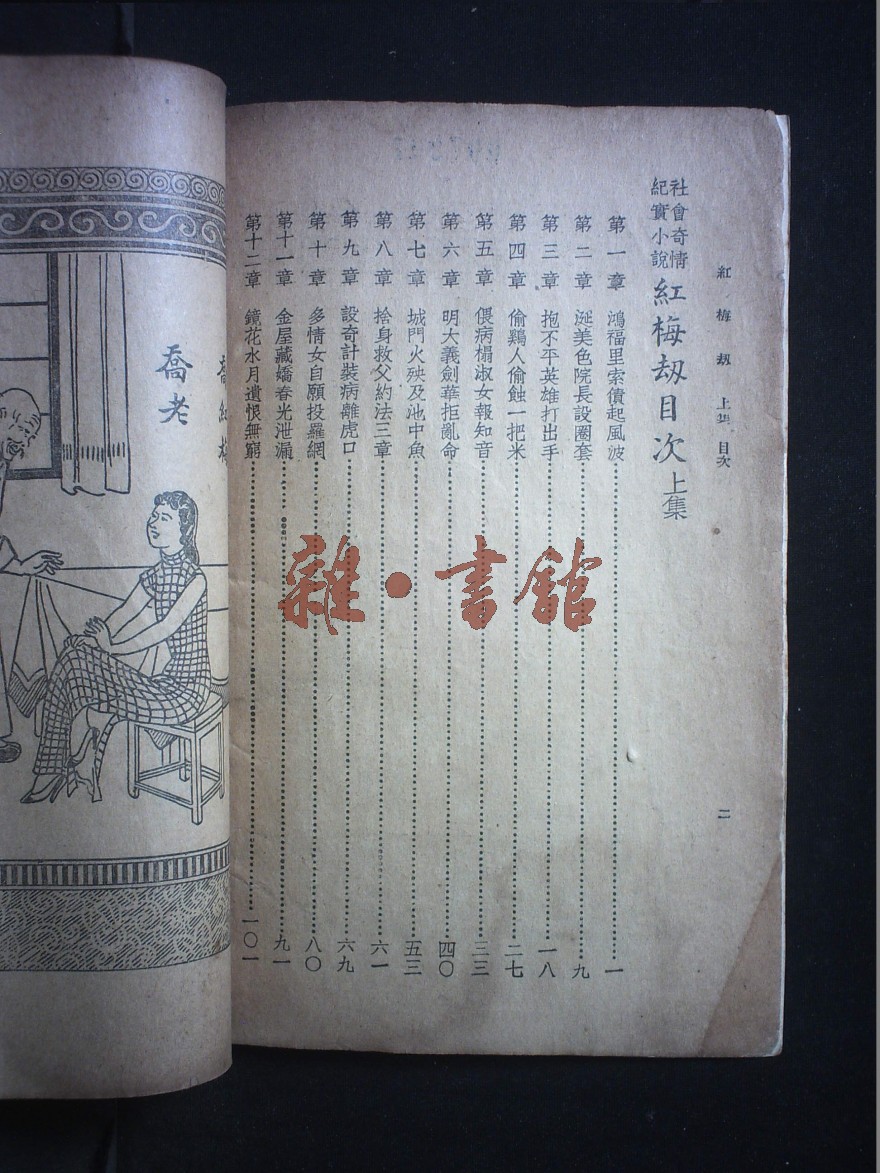 紅梅刼 上集 目次
二
社會奇情
紀實小說
紅梅刼目次 上集
第一章 鴻福里索債起風波 一
第二章 涎美色院長設圈套 九
第三章 抱不平英雄打出手 一八
第四章 偷鷄人偷蝕一把米 二七
第五章 偎病榻淑女報知音 三三
第六章 明大義劍華拒亂命 四〇
第七章 城門火殃及池中魚 五三
第八章 捨身救父約法三章 六一
第九章 設奇計裝病離虎口 六九
第十章 多情女自願投羅網 八〇
第十一章 金屋藏嬌春光泄漏 九一
第十二章 鏡花水月遺恨無窮 一〇一
雜·書館
喬紅梅
喬老